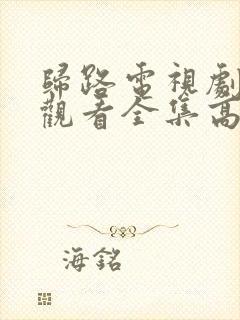 歸路電視劇
觀看全集高
海銘